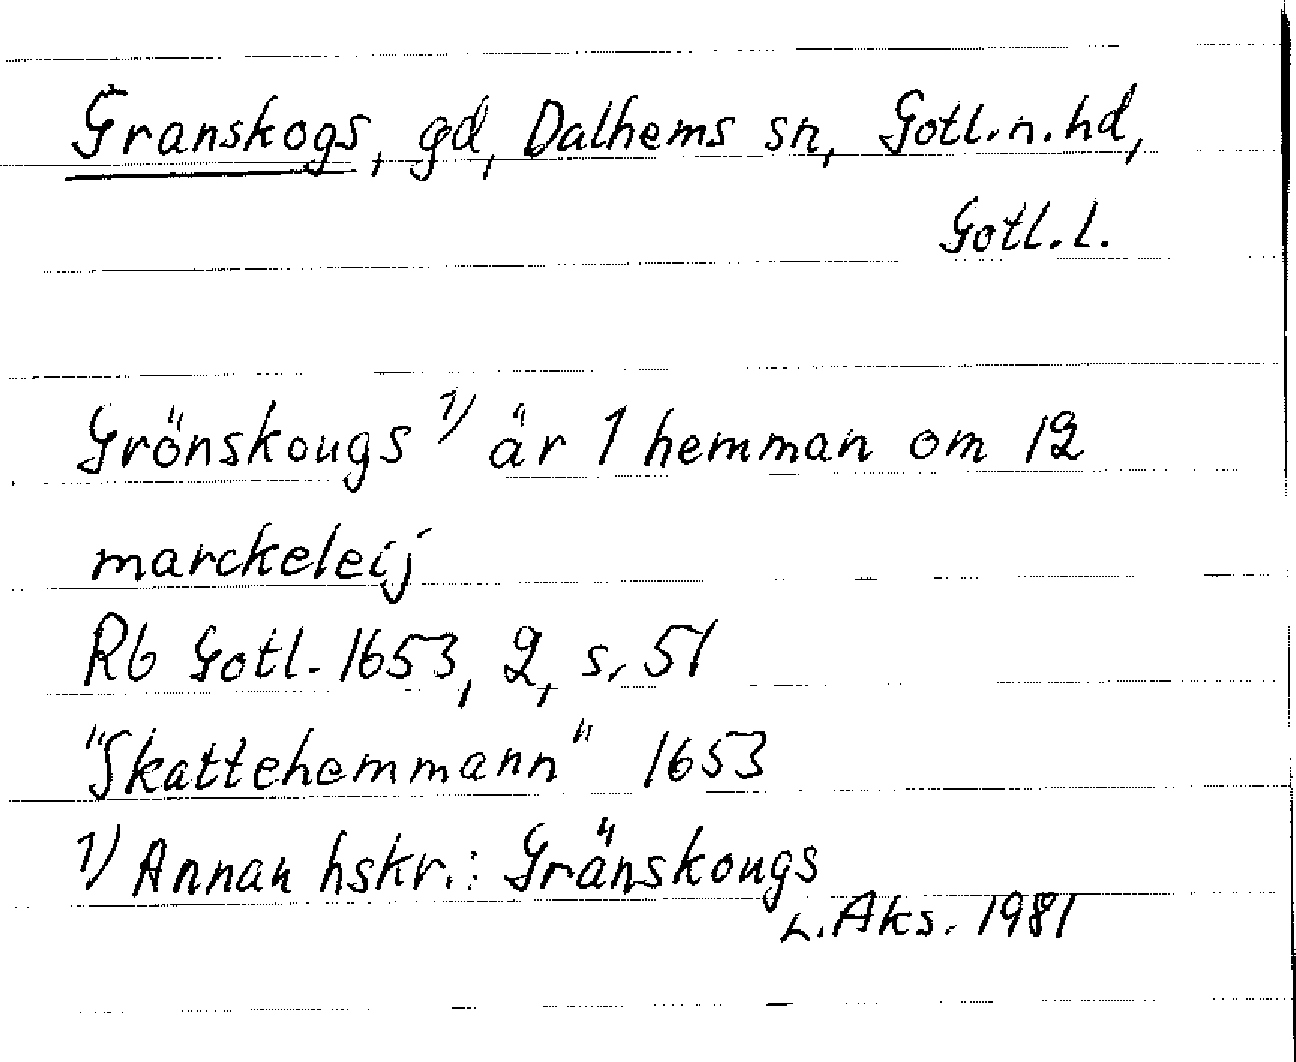 Granskogs, gd, Dalhems sn, Gotl.n.hd,
Gotl.l.
Grönskougs 1) är 1 hemman om 12
marckeleij
Rb Gotl. 1653, 2, s. 51
"Skattehemmann" 1653
1) Annan hskr.: Gränskougs
L. Aks. 1981